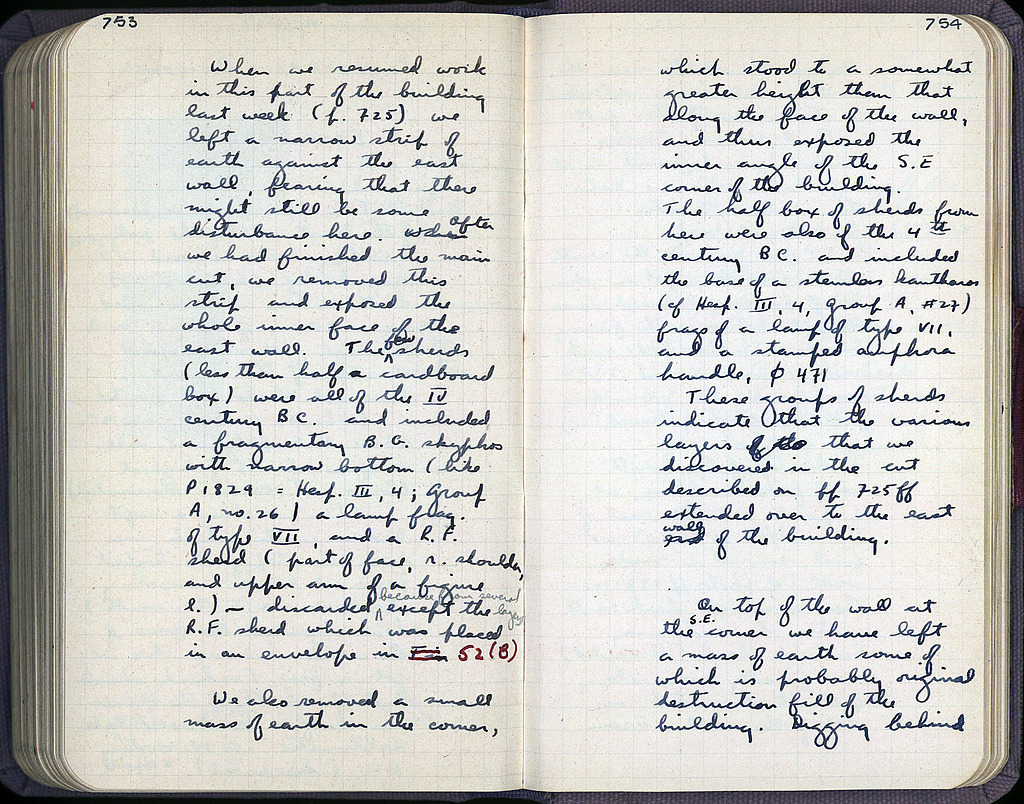 753
When we resumed work
in this part of the building
last week (p. 725) we
left a narrow strip of
earth against the east
wall, fearing that there
might still be some
disturbance here. When after
we had finished the main
cut, we removed this
strip and exposed the
whole inner face of the
east wall. The few sherds
(less than half a cardboard
box) were all of the IV
century BC. and included
a fragmentary B.G. skyphos
with narrow bottom (like
P1829 = Hesp. III, 4; Group
A, no. 26) a lamp frag.
of type VII, and a R.F.
sherd (part of face, r. shoulder,
and upper arm of a figure
l.) — discarded because from several layers except the
R.F. sherd which was placed
in an envelope in 52 (B)
We also removed a small
mass of earth in the corner,
754
which stood to a somewhat
greater height than that
along the face of the wall,
and thus exposed the
inner angle of the S.E
corner of the building.
The half box of sherds from
here were also of the 4th
century BC. and included
the base of a stemless kantharos
(cf Hesp. III, 4, Group A, #27)
frags of a lamp of type VII,
and a stamped amphora
handle, φ 471
These groups of sherds
indicate that the various
layers that we
discovered in the cut
described on pp 725ff
extended over to the east
wall of the building.
On top of the wall at
the S.E. corner we have left
a mass of earth some of
which is probably original
destruction fill of the
building. Digging behind